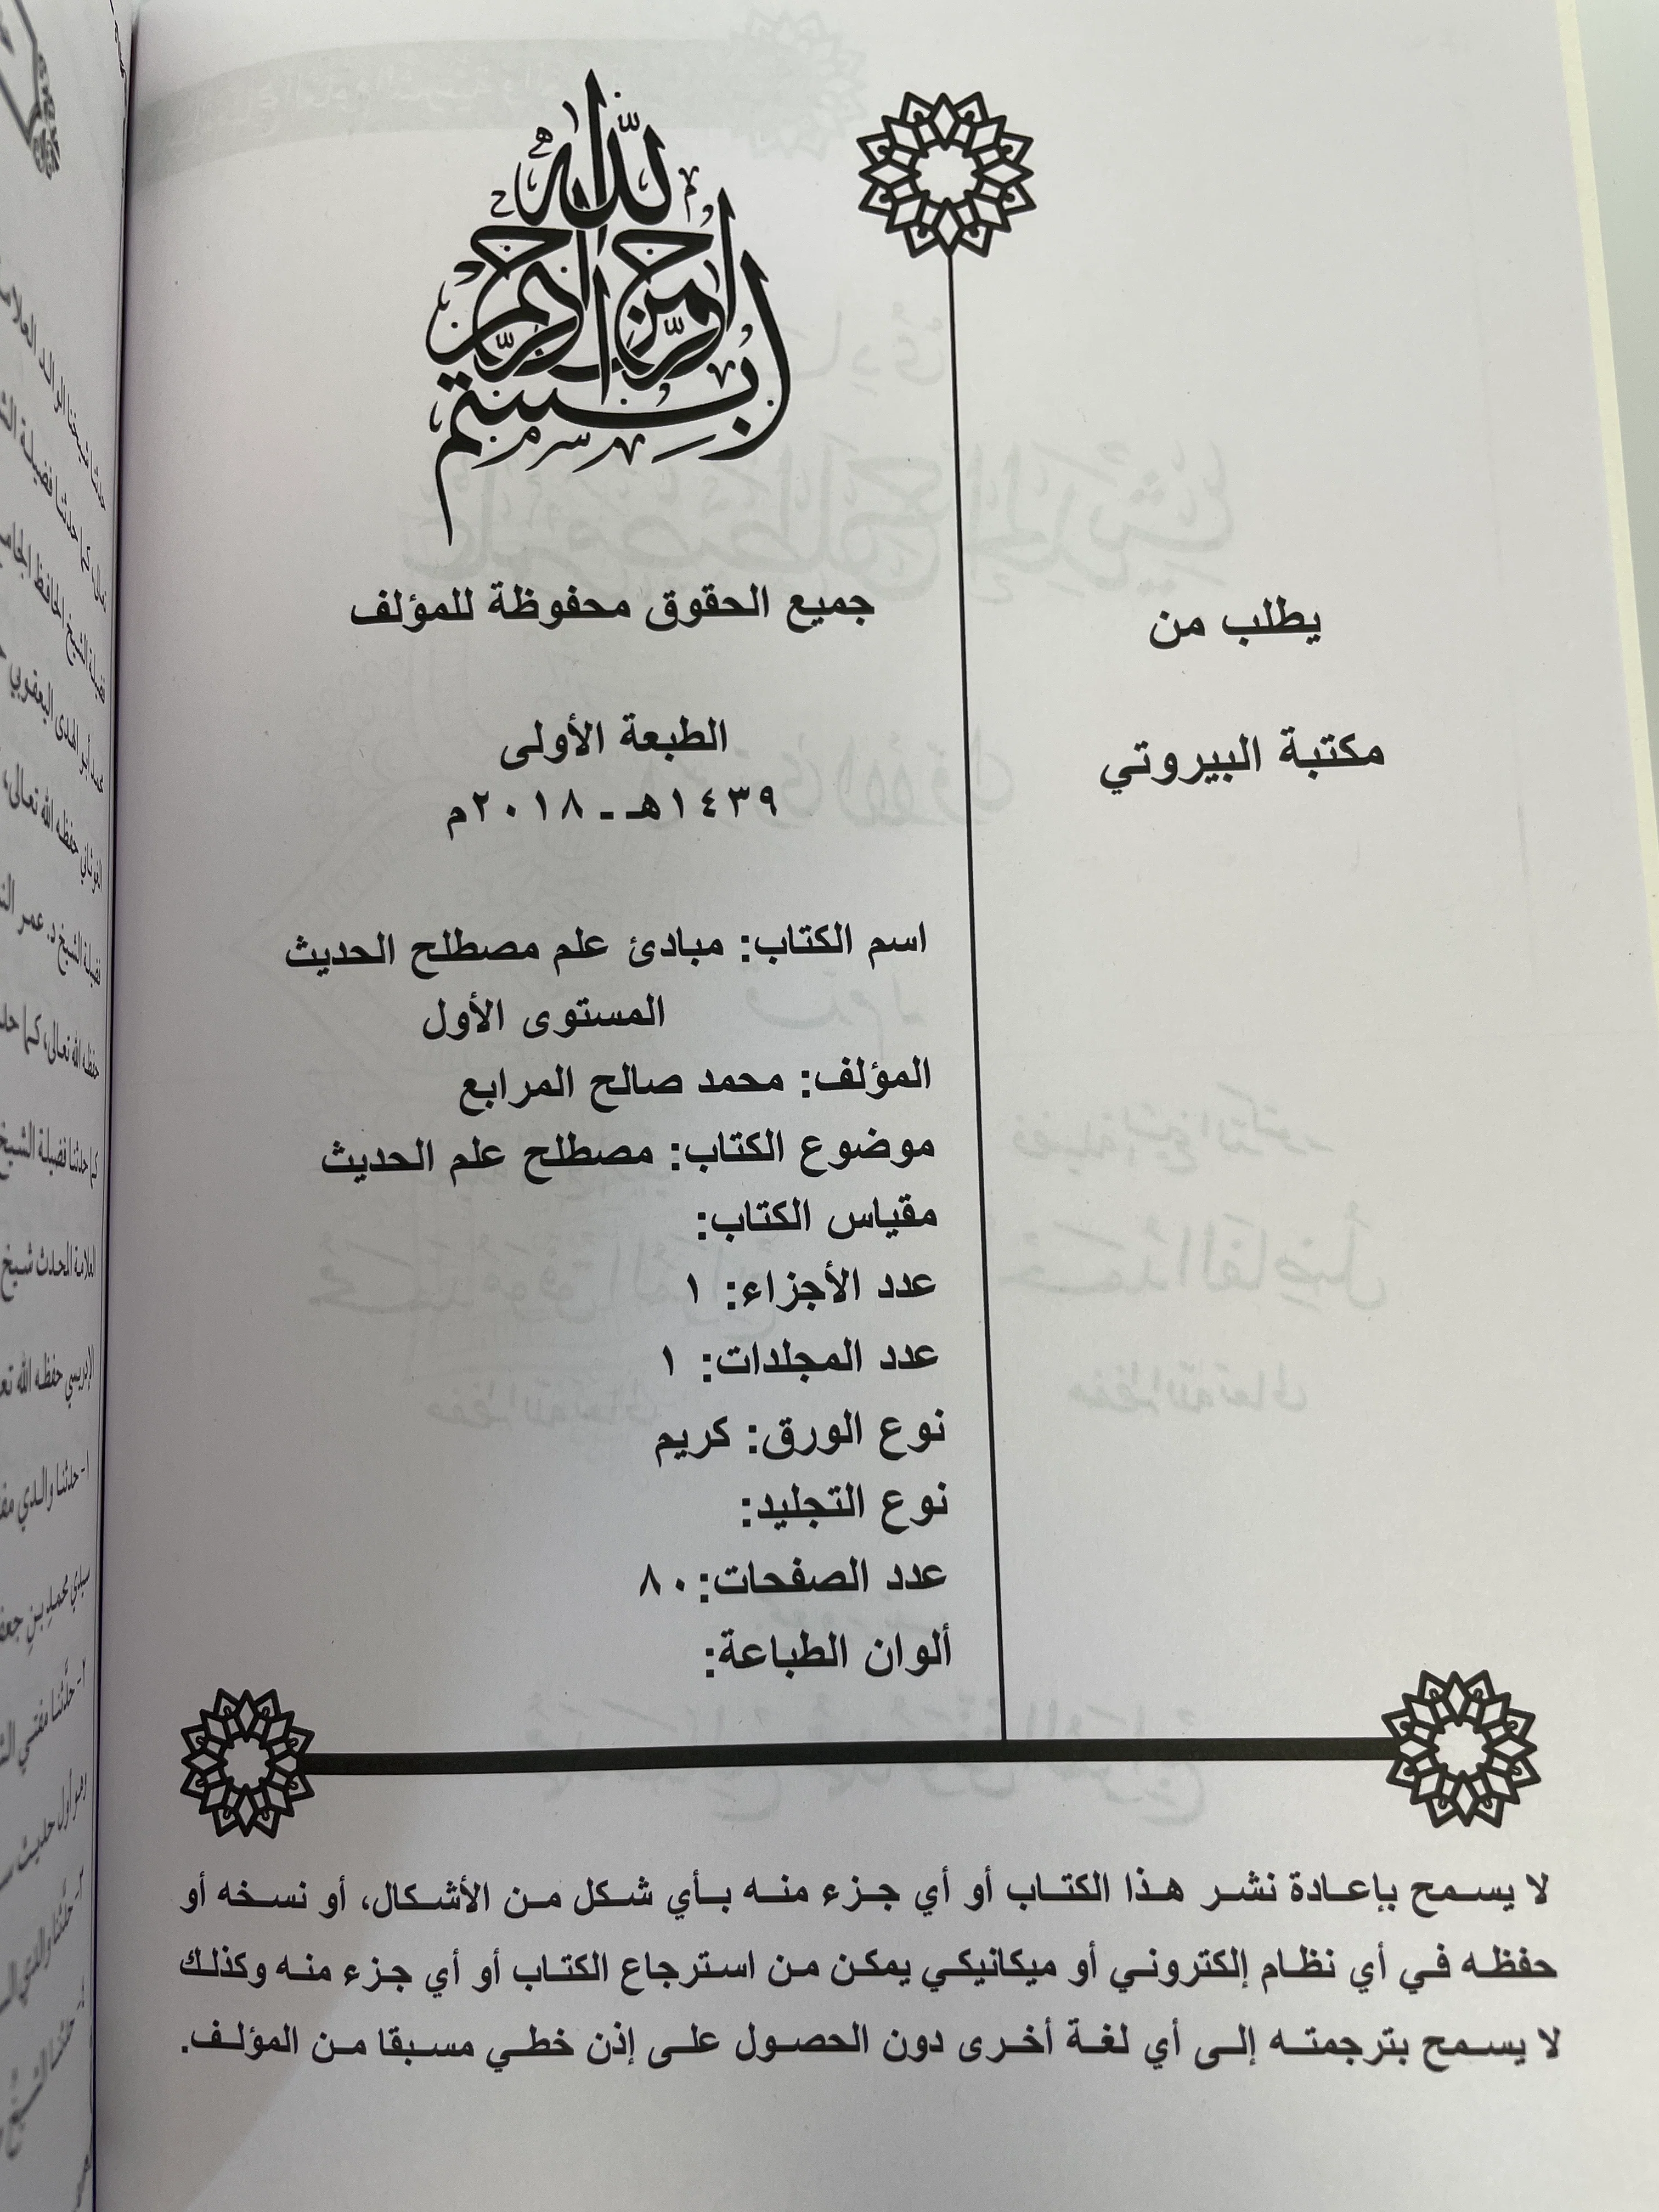 بسم الله الرحمن الرحيم
جميع الحقوق محفوظة للمؤلف
الطبعة الأولى
١٤٣٩هـ - ٢٠١٨م
يطلب من
مكتبة البيروتي
اسم الكتاب: مبادئ علم مصطلح الحديث
المستوى الأول
المؤلف: محمد صالح المرابع
موضوع الكتاب: مصطلح علم الحديث
مقياس الكتاب:
عدد الأجزاء: ١
عدد المجلدات: ١
نوع الورق: كريم
نوع التجليد:
عدد الصفحات: ٨٠
ألوان الطباعة:
لا يسمح بإعادة نشر هذا الكتاب أو أي جزء منه بأي شكل من الأشكال، أو نسخه أو
حفظه في أي نظام إلكتروني أو ميكانيكي يمكن من استرجاع الكتاب أو أي جزء منه وكذلك
لا يسمح بترجمته إلى أي لغة أخرى دون الحصول على إذن خطي مسبقا من المؤلف.